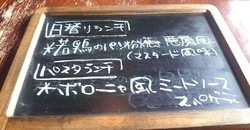 日替りランチ
※若鶏のパン粉焼き 悪魔風
(マスタード風味)
パスタランチ
※ボローニャ風ミートソース
スパゲティ